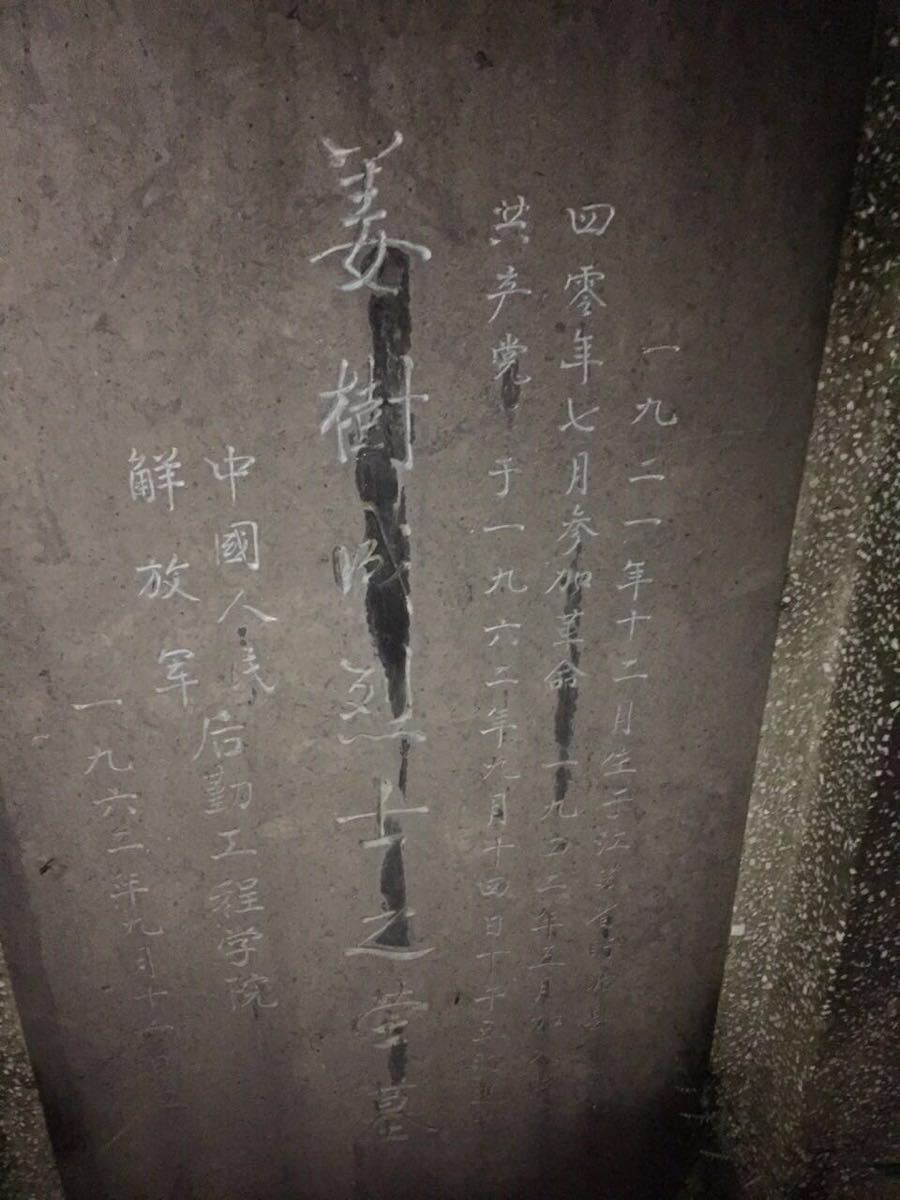 一九二一年十二月生于江苏省
四零年七月参加革命一九四二年五月加
共产党于一九六二年九月十四日十千
姜樹成烈士之塋墓
中國人民
解放军
后勤工程学院
一九六二年九月十